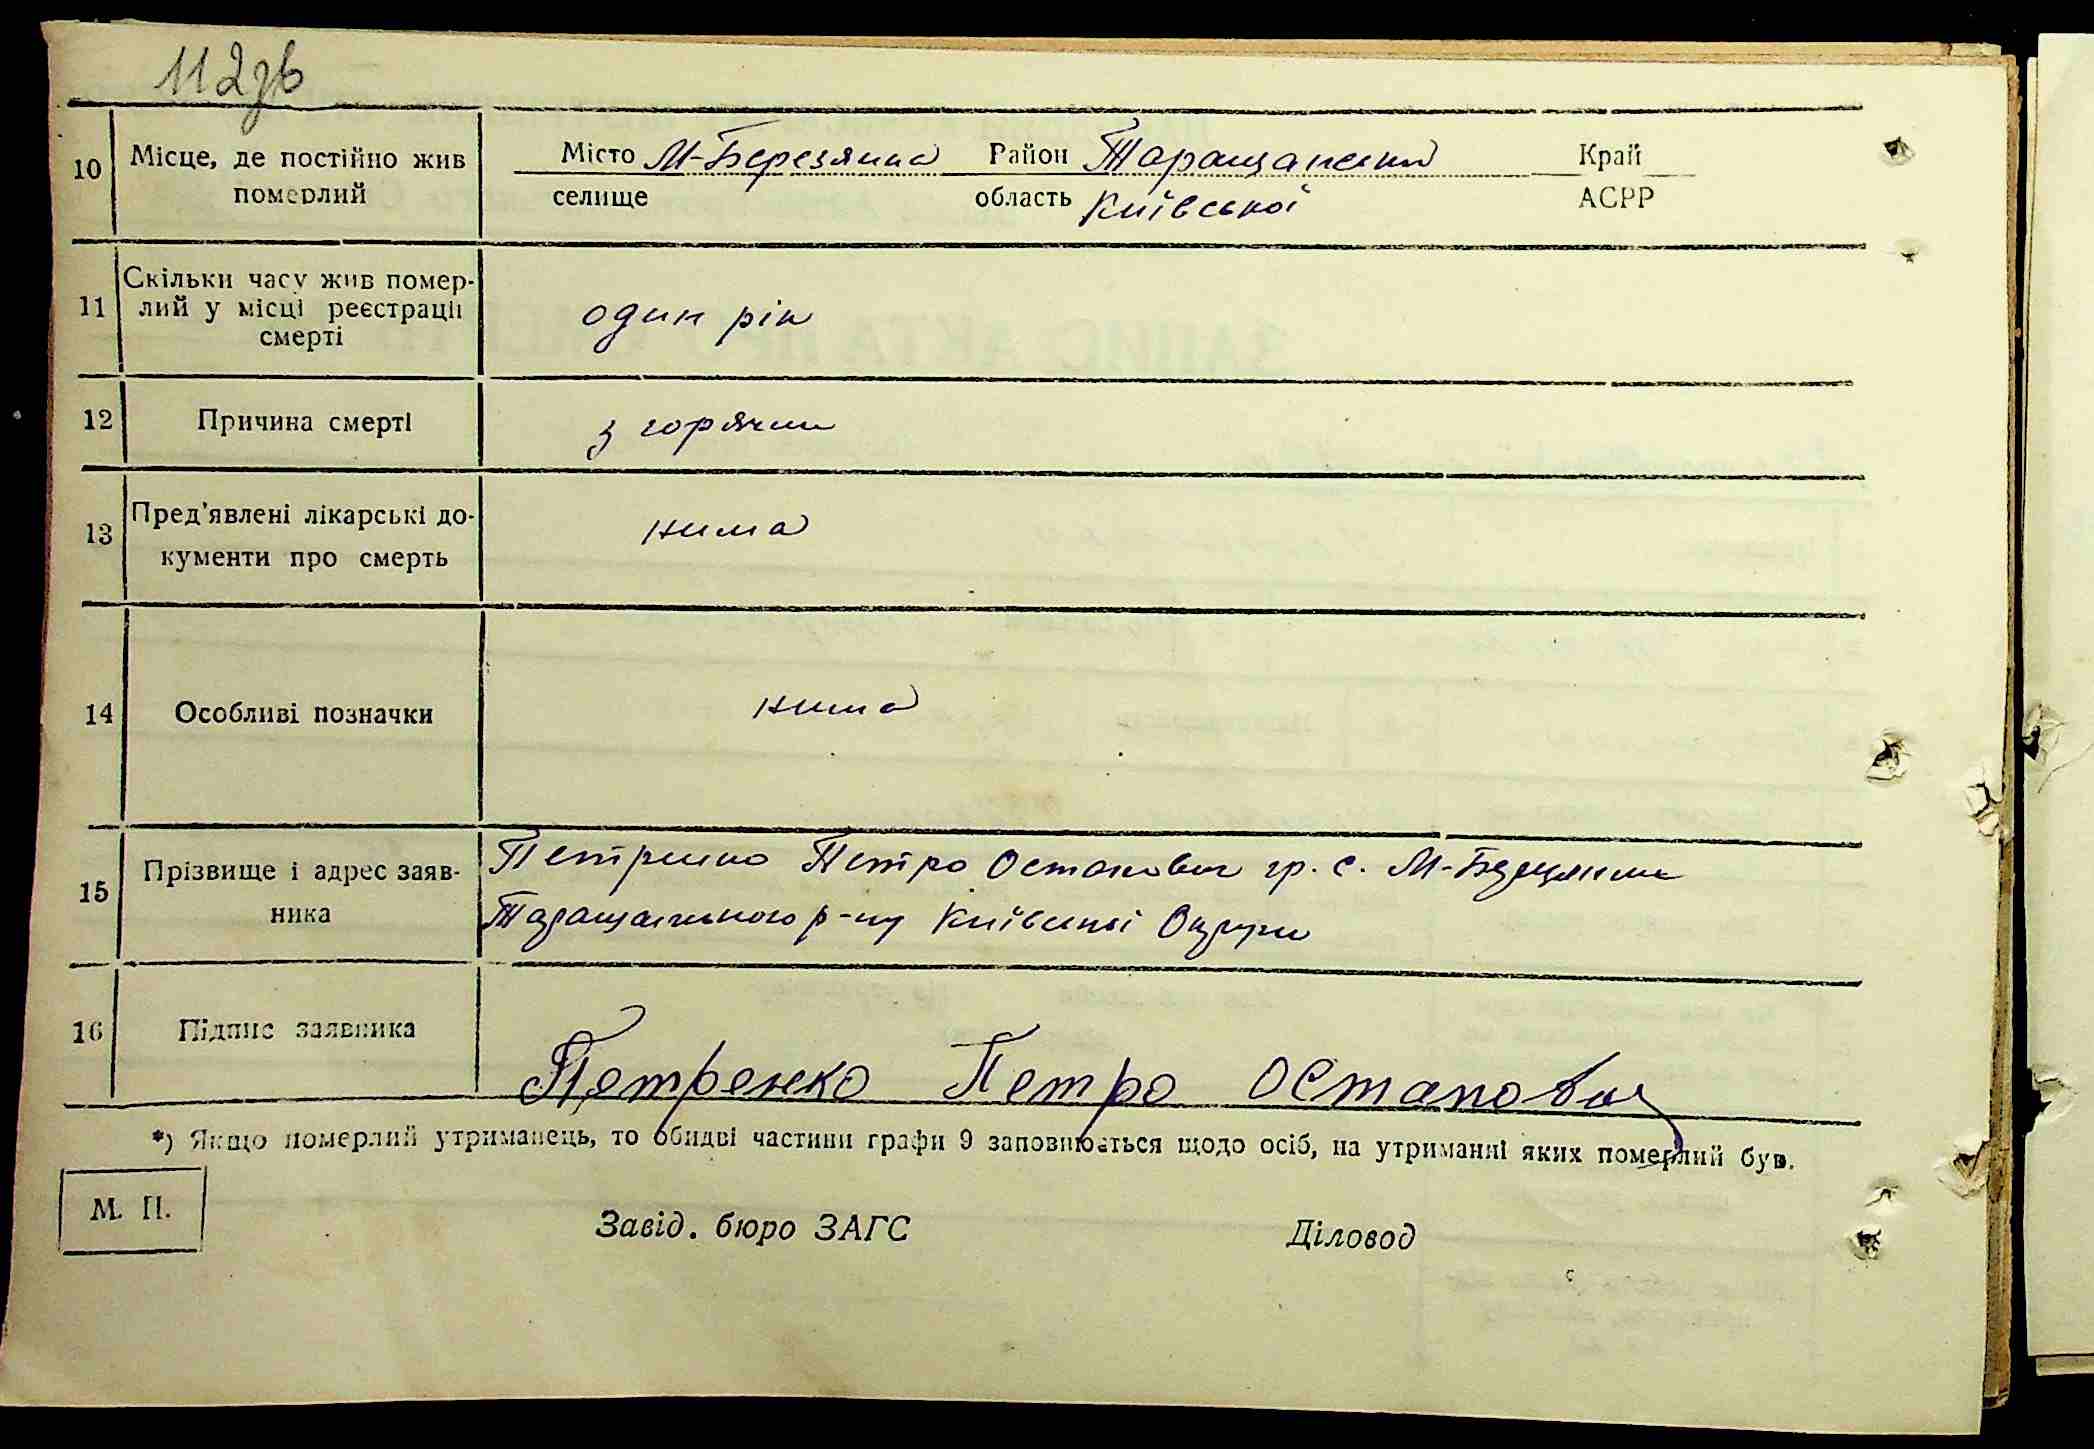 112зв
10 Місце, де постійно жив Місто М-Березянка Район Таращанський Край
померлий селище область Київської АСРР
Скільки часу жив помер-
11 лий у місці реєстрації один рік
смерті
12 Причина смерті з горячки
13 Пред'явлені лікарські до- нима
кументи про смерть
14 Особливі позначки нима
15 Прізвище і адрес заяв- Петренко Петро Остапович гр. с. М-Березянки
ника Таращанського р-ну Київської Округи
16 Підпис заявника Петренко Петро Остапович
*) Якщо померлий утриманець, то обидві частини графи 9 заповнюється щодо осіб, на утриманні яких померлий був.
М. П.
Завід. бюро ЗАГС Діловод